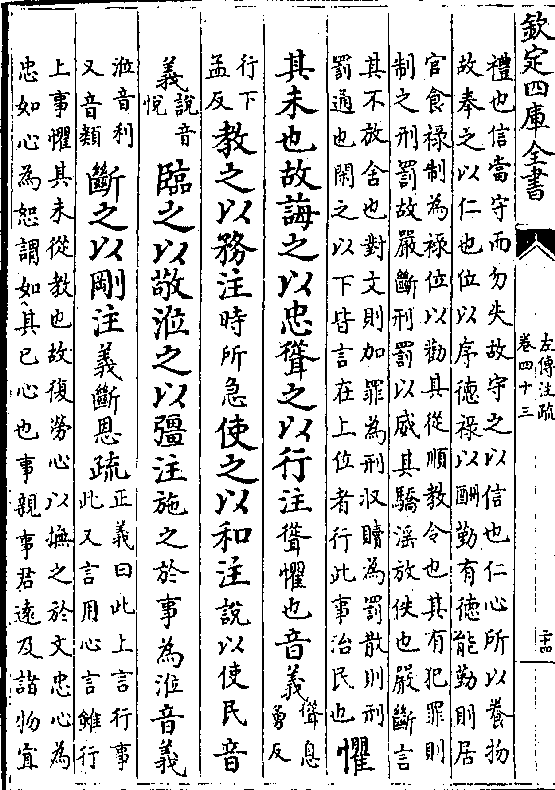 欽定四庫全書
左傳注疏
卷四十三
二十四
禮也信當守而勿失故守之以信也仁心所以養物
故奉之以仁也位以序德祿以酬勤有德能勤則居
官食祿制為祿位以勸其從順教令也其有犯罪則
制之刑罰故嚴斷刑罰以威其驕滛放佚也嚴斷言
其不放舍也對文則加罪為刑收贖為罰散則刑
罰通也閑之以下皆言在上位者行此事治民也懼
其未也故誨之以忠聳之以行注聳懼也音義聳息
勇反
行下
孟反教之以務注時所急使之以和注說以使民音
義說音
悅臨之以敬涖之以彊注施之於事為涖音義
涖音利
又音類斷之以剛注義斷恩疏正義曰此上言行事
此又言用心言雖行
上事懼其未從教也故復勞心以撫之於文忠心為
忠如心為恕謂如其已心也事親事君遠及諸物宜